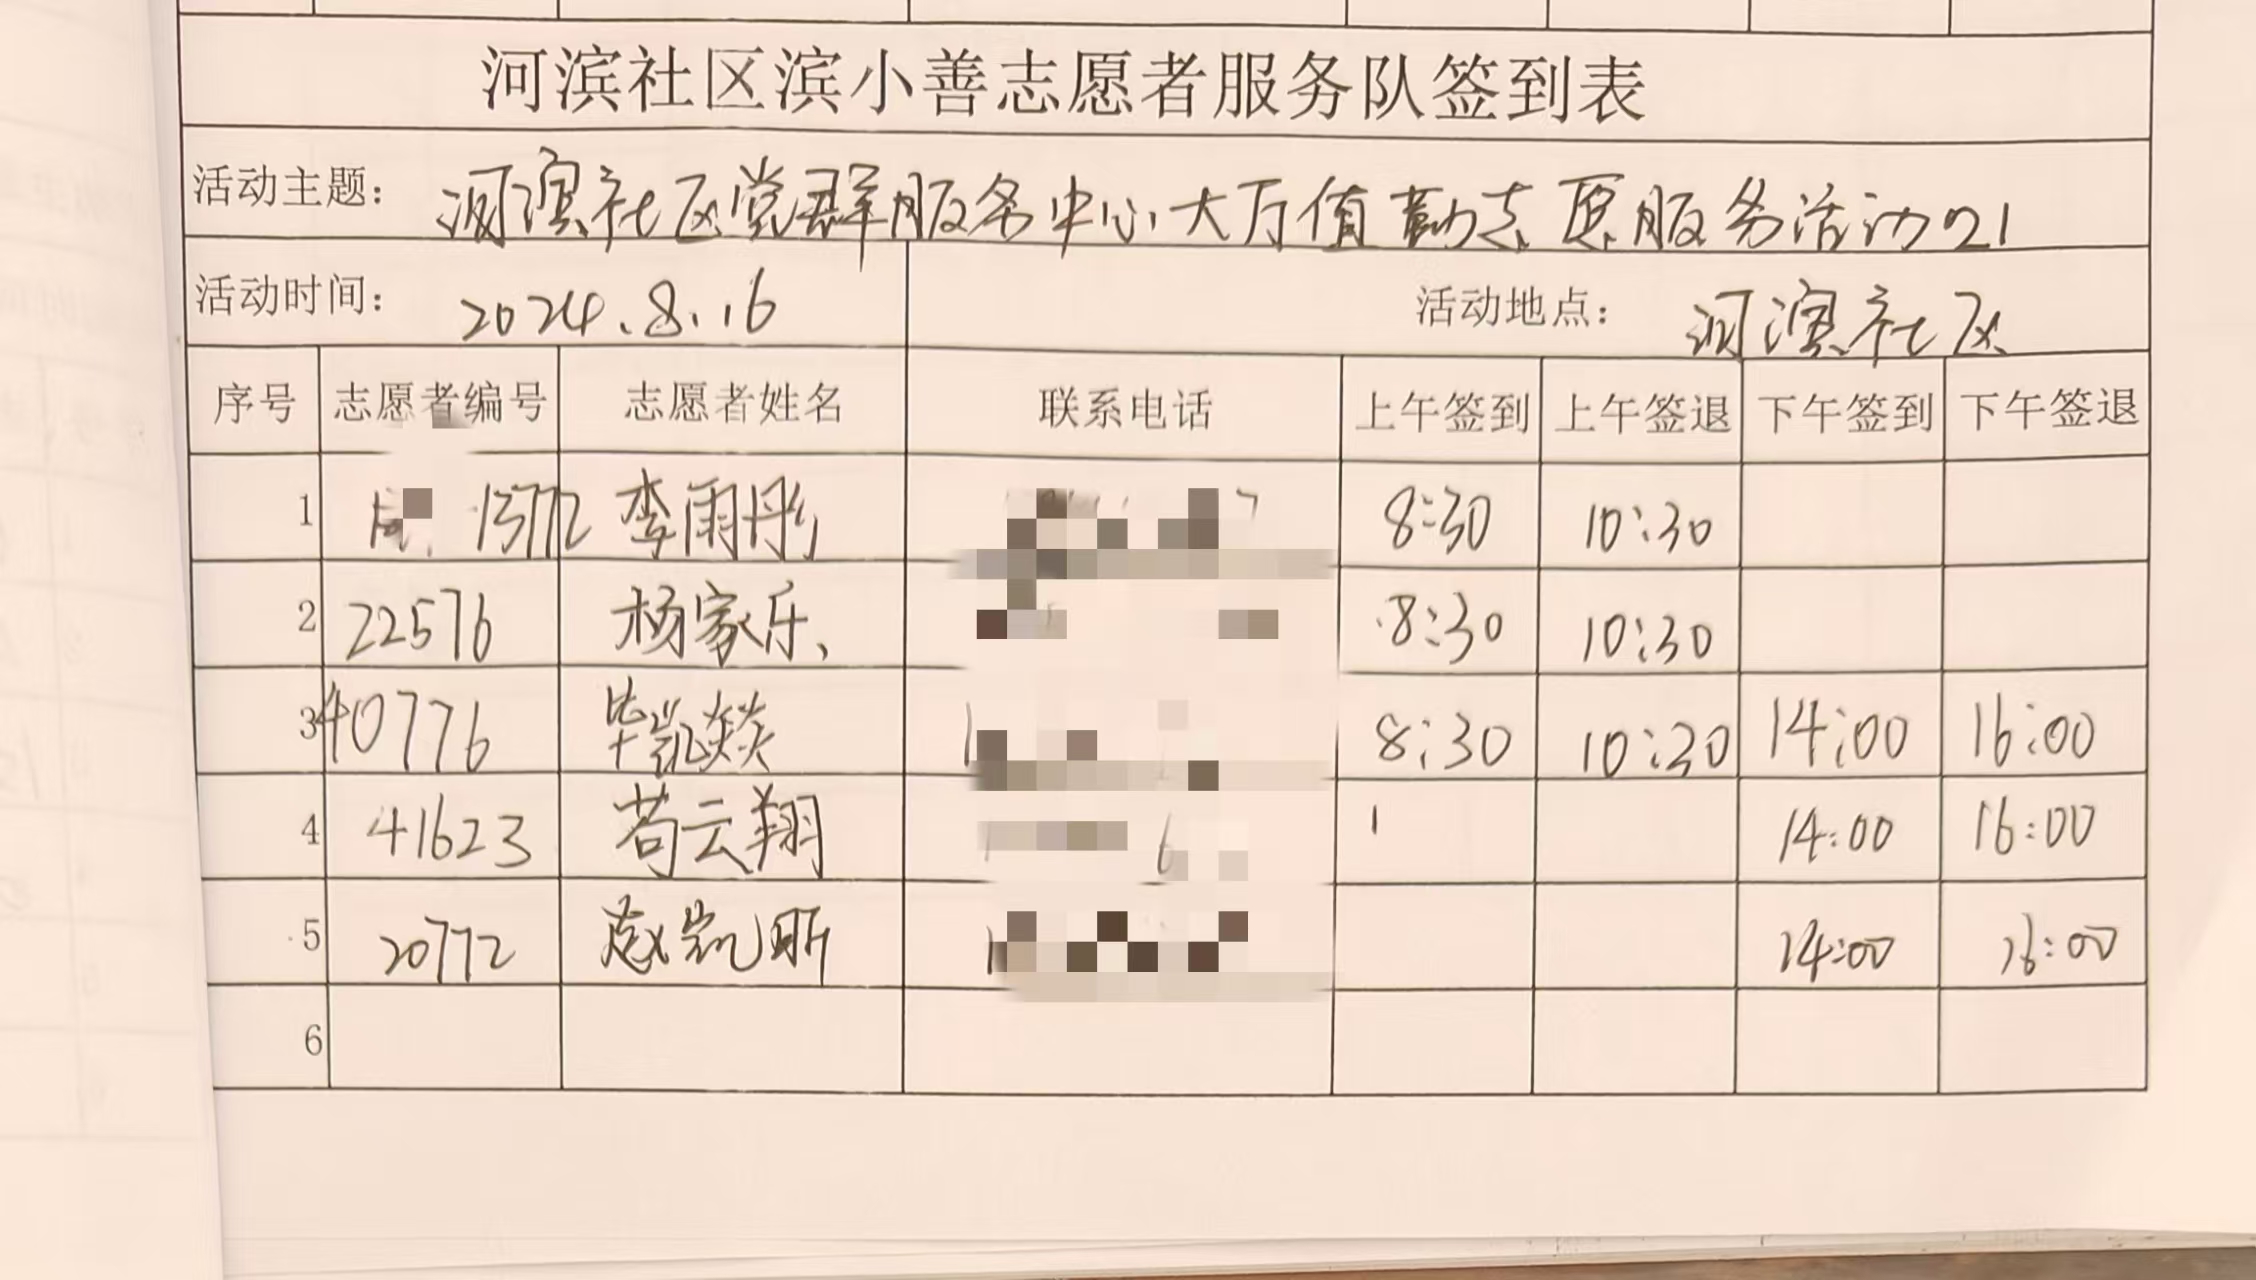 河滨社区滨小善志愿者服务队签到表
活动主题： 河滨社区党群服务中心大厅值勤志愿服务活动21
活动时间： 2024.8.16 活动地点： 河滨社区
序号 志愿者编号 志愿者姓名 联系电话 上午签到 上午签退 下午签到 下午签退
1 13772 李雨彤 8:30 10:30
2 22576 杨家乐 8:30 10:30
3 40776 毕凯燚 8:30 10:30 14:00 16:00
4 41623 苟云翔 14:00 16:00
5 20772 赵凯昕 14:00 16:00
6